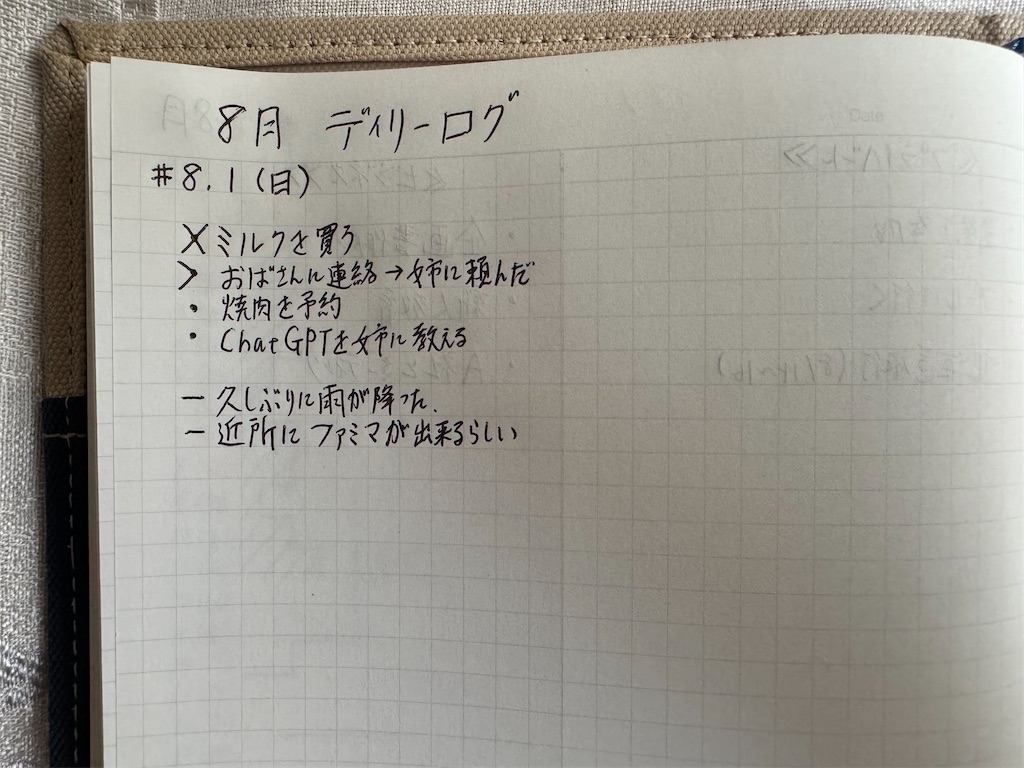 8月 デイリーログ
#8.1(日)
X ミルクを買う
> おばさんに連絡→姉に頼んだ
・ 焼肉を予約
・ ChatGPTを姉に教える
− 久しぶりに雨が降った.
− 近所にファミマが出来るらしい
Date